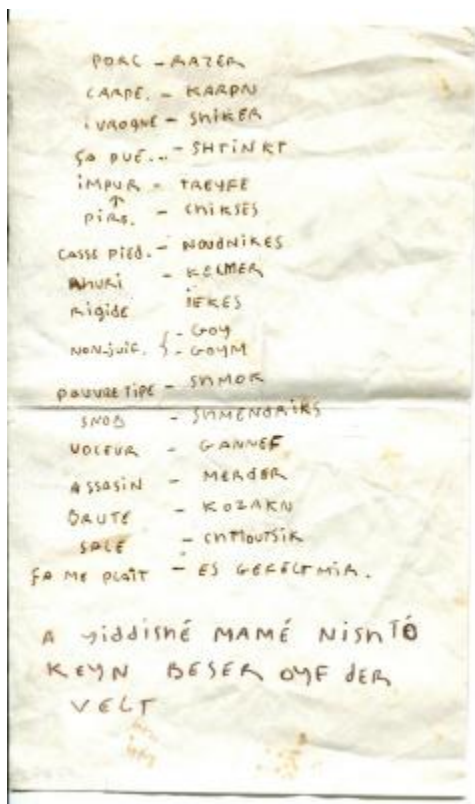 PORC - RAZER
CARPE. - KARPN
iVROGNE - SHIKER
ça pue... - SHTINKT
iMPUR - TREYFE
↑
PiRE. - CHIKSES
CASSE PIED. - NOUDNIKES
AHURI - KELMER
Rigide IEKES
NON-juif. { - GOY
- GOYM
PAUVRE TIPE - SHMOK
SNOB - SHMENDRIKS
VOLEUR - GANNEF
ASSASIN - MERDER
BRUTE - KOZAKN
SALE - CHMOUTSIK
ÇA ME PLAÎT - ES GEFELT MIR.
A YIDDISHÉ MAMÉ NISHTÒ
KEYN BESER OYF DER
VELT